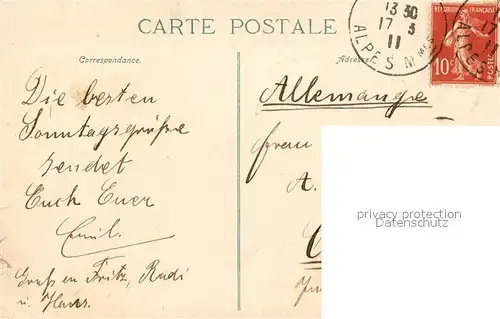 CARTE POSTALE
Correspondance.
Adresse
Die besten
Sonntagsgrüße
sendet
Euch Euer
Emil.
Gruß an Fritz, Rudi
u. Hans.
13 30
17 3
11
ALPES Mmes
REPUBLIQUE FRANÇAISE
10c
POSTES
17
11
ALPES
Allemange
Frau
A.
privacy protection
Datenschutz